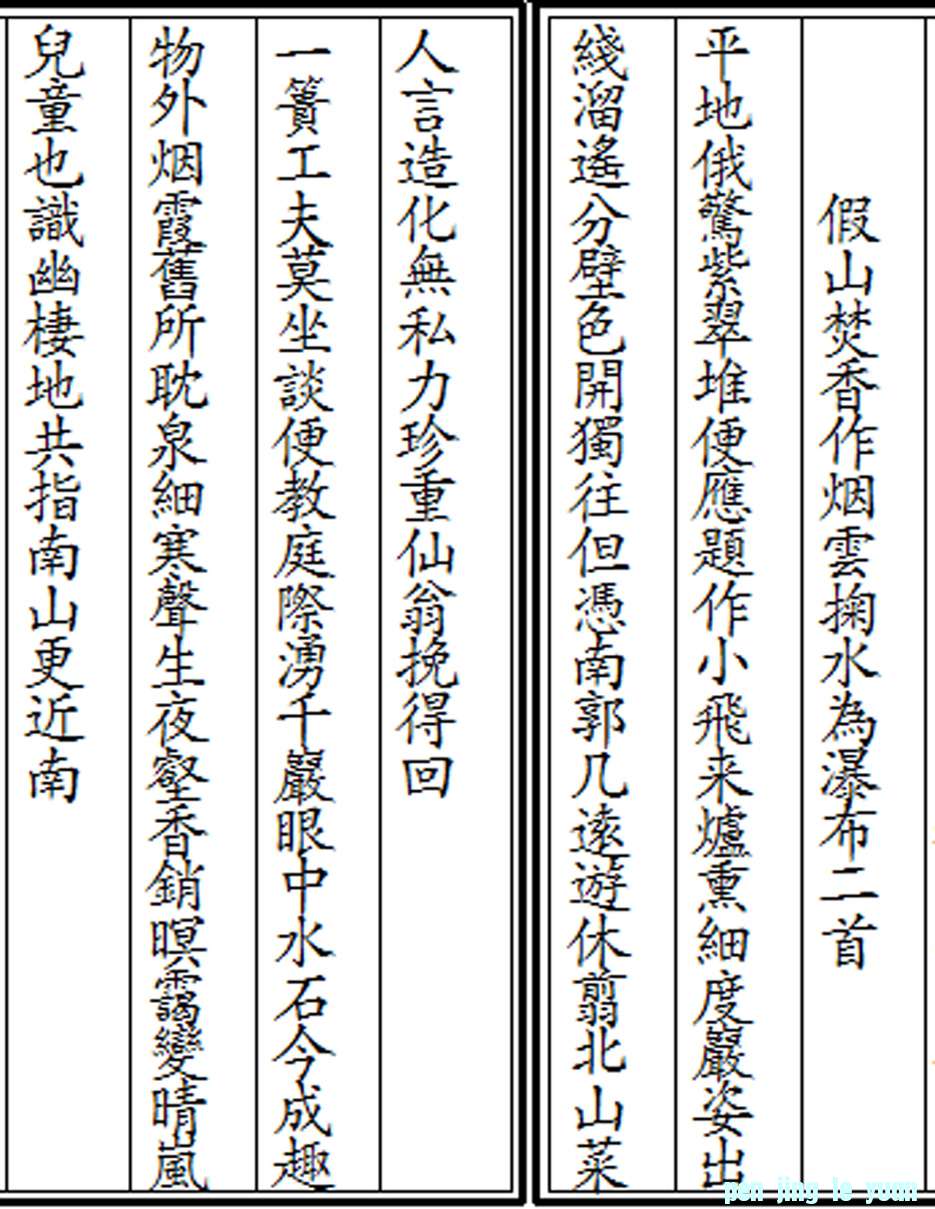 假山焚香作烟雲掬水為瀑布二首
平地俄驚紫翠堆便應題作小飛来爐熏細度巖姿出
綫溜遙分壁色開獨往但憑南郭几遠遊休翦北山萊
人言造化無私力珍重仙翁挽得回
一簣工夫莫坐談便教庭際湧千巖眼中水石今成趣
物外烟霞舊所耽泉細寒聲生夜壑香銷暝靄變晴嵐
兒童也識幽棲地共指南山更近南
pen jing le yuan